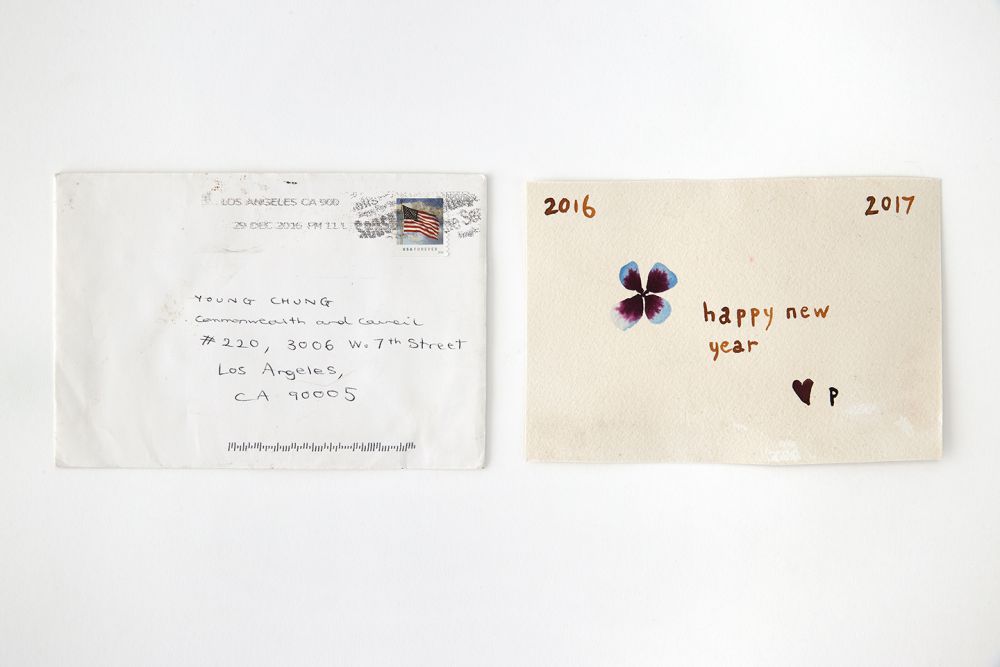 LOS ANGELES CA 900
29 DEC 2016 PM 11 L
USA FOREVER
YOUNG CHUNG
Commonwealth and Council
#220, 3006 W. 7th Street
Los Angeles,
CA 90005
2016
2017
happy new
year
P